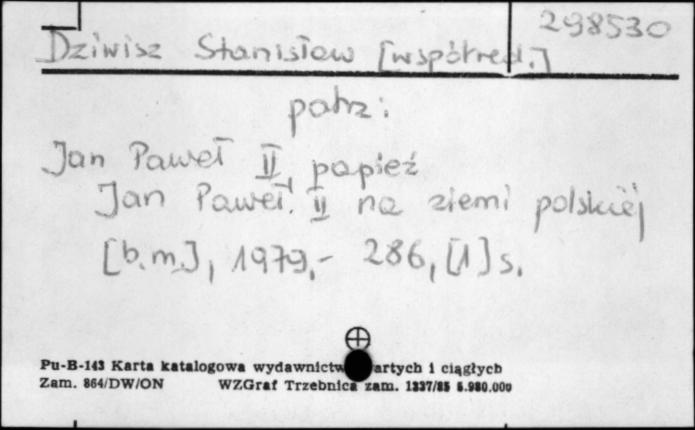 298530
Dziwisz Stanisław [współred.]
patrz:
Jan Paweł II, papież
Jan Paweł II na ziemi polskiej
[b.m.], 1979,- 286, [1] s.
Pu-B-143 Karta katalogowa wydawnictw artych i ciągłych
Zam. 864/DW/ON WZGraf Trzebnica zam. 1337/85 5.980.000